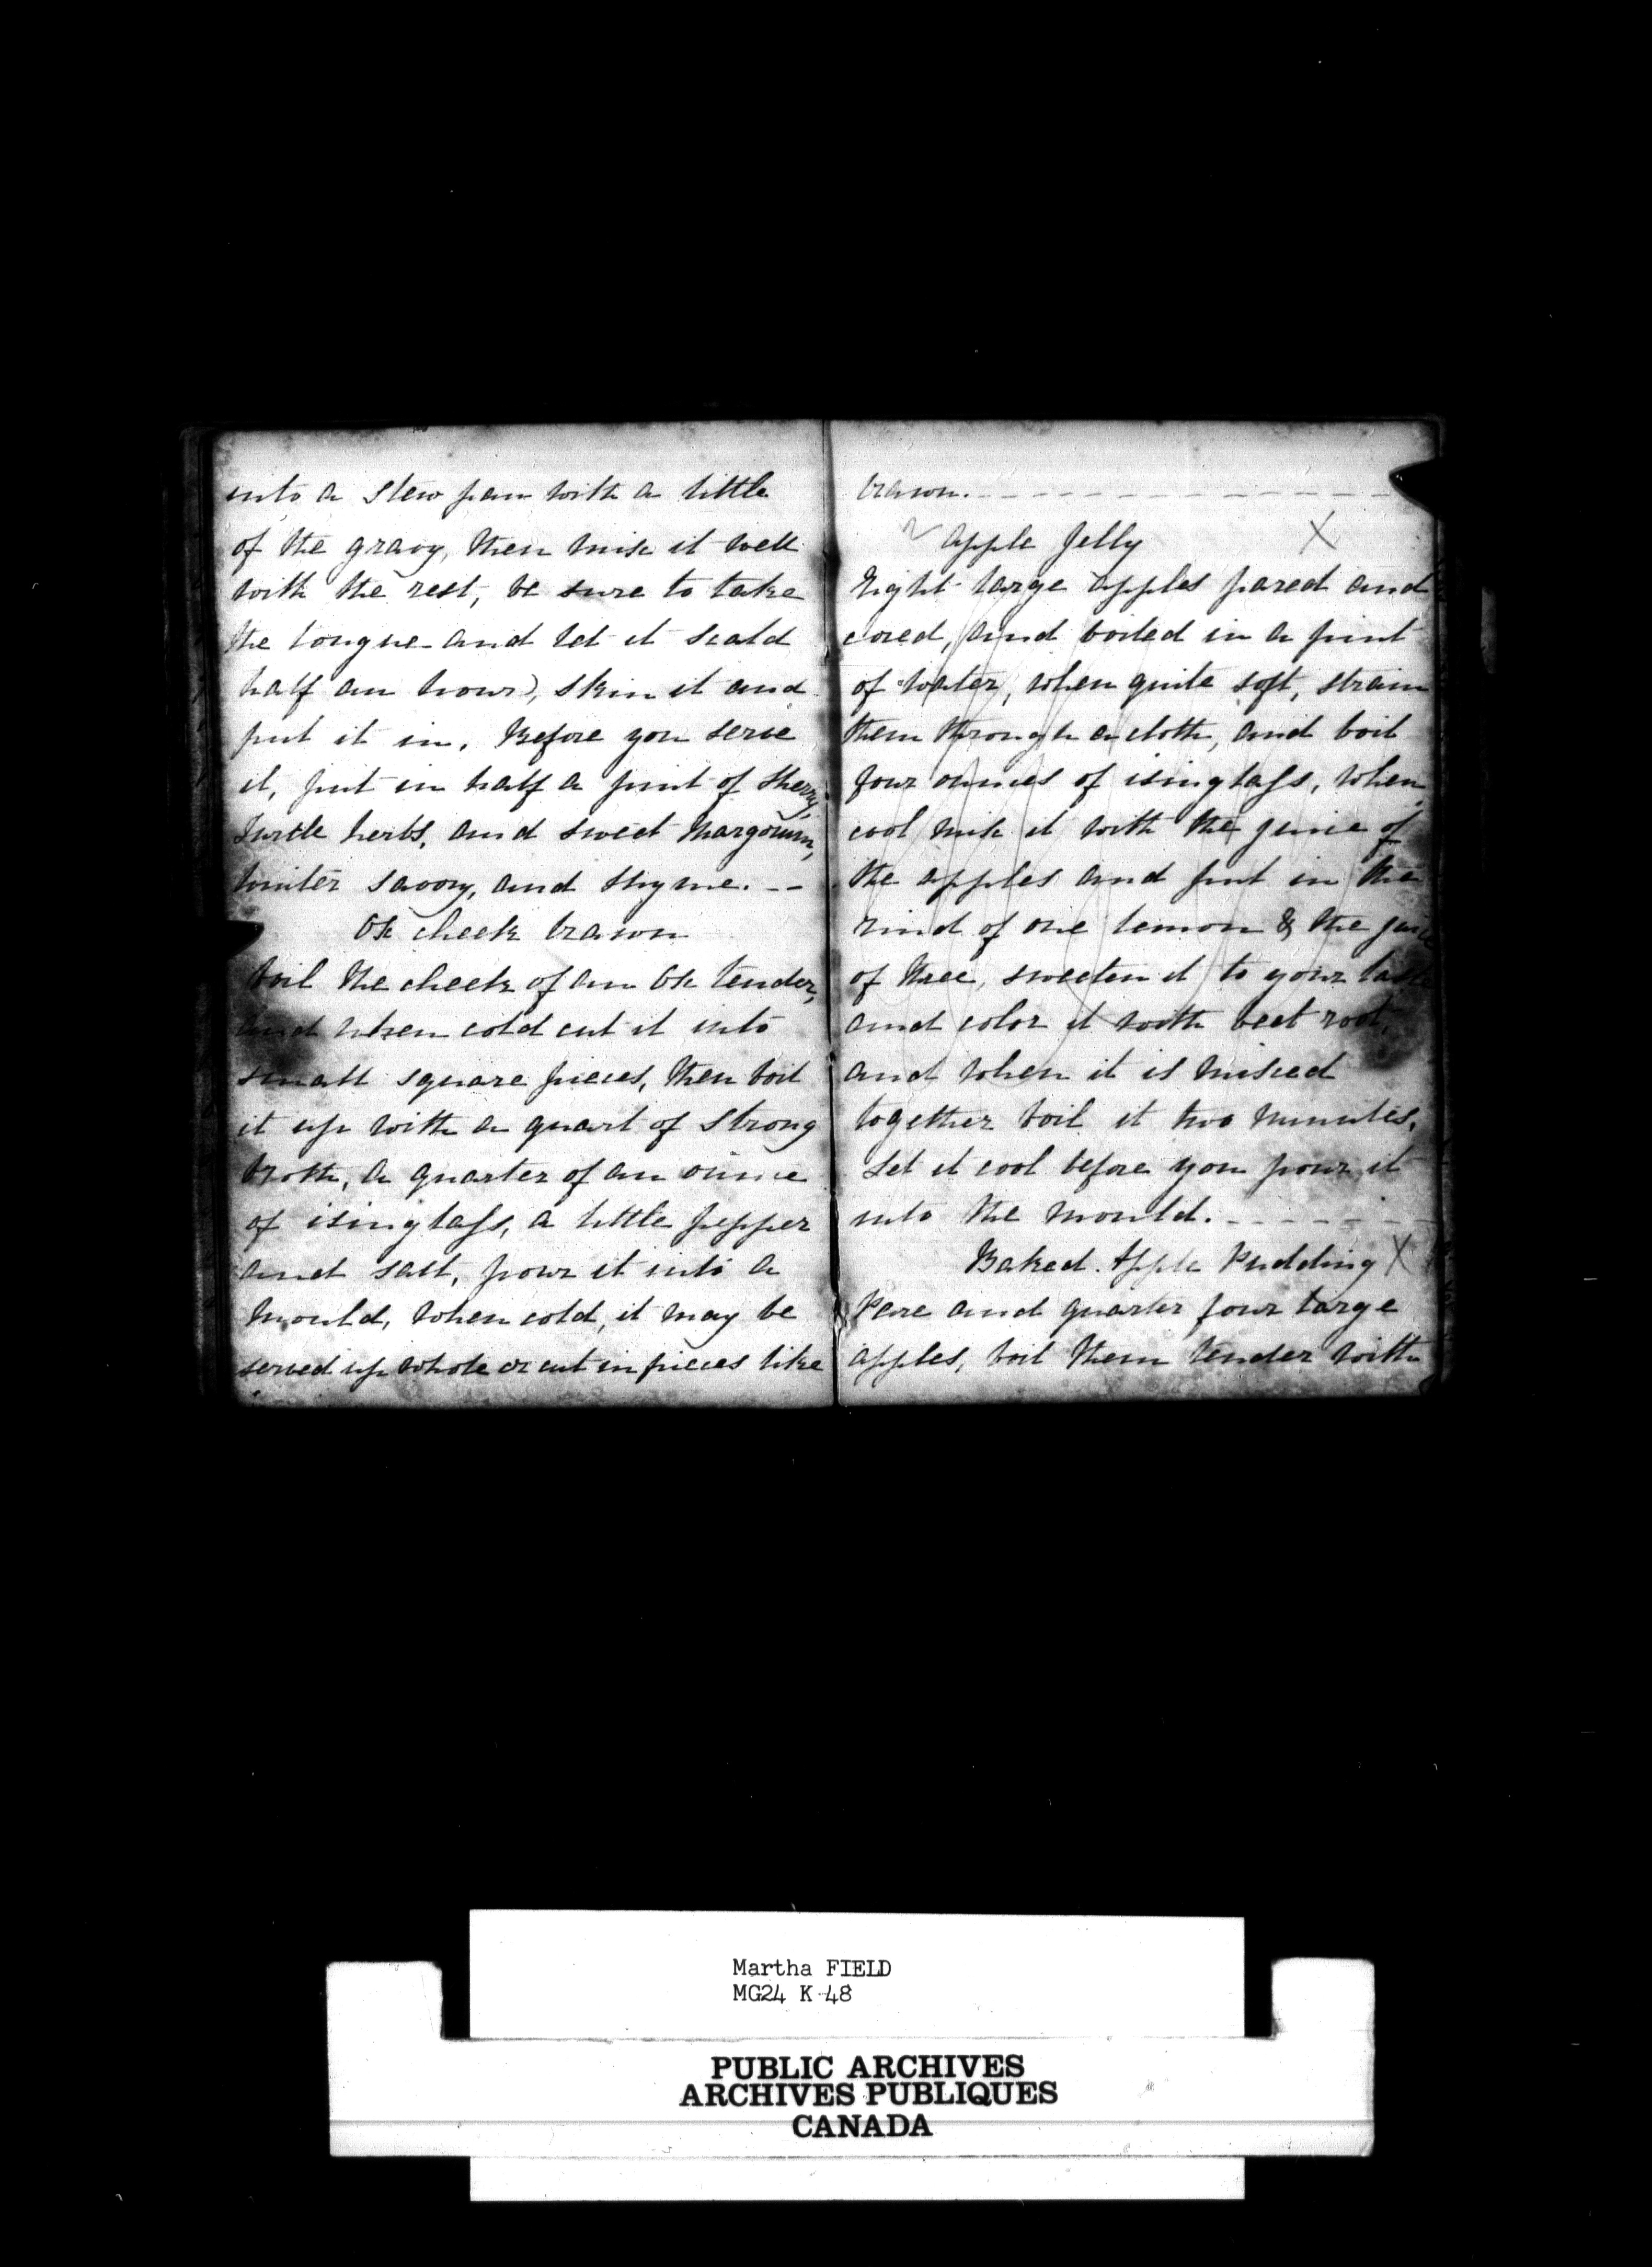 into a stew pan with a little
of the gravy, then mix it well
with the rest, be sure to take
the tongue and let it scald
half an hour), skin it and
put it in. Before you serve
it, put in half a pint of Sherry,
Turtle herbs, and sweet Margorum,
Winter savory, and thyme. --
Ox cheek brawn
boil the cheek of an Ox tender,
and when cold cut it into
small square pieces, then boil
it up with a quart of strong
broth, a quarter of an ounce
of isinglass, a little pepper
and salt, pour it into a
mould, when cold, it may be
served up whole or cut in pieces like
brawn.
Apple Jelly X
Eight large apples pared and
cored, and boiled in a pint
of water, when quite soft, strain
them through a cloth, and boil
four ounces of isinglass, when
cool mix it with the juice of
the apples and put in the
rind of one lemon & the juice
of three, sweeten it to your taste
and color it with beet root,
and when it is mixed
together boil it two minutes,
Let it cool before you pour it
into the mould.
Baked Apple Pudding X
Pare and quarter four large
apples, boil them tender with
Martha FIELD
MG24 K 48
PUBLIC ARCHIVES
ARCHIVES PUBLIQUES
CANADA